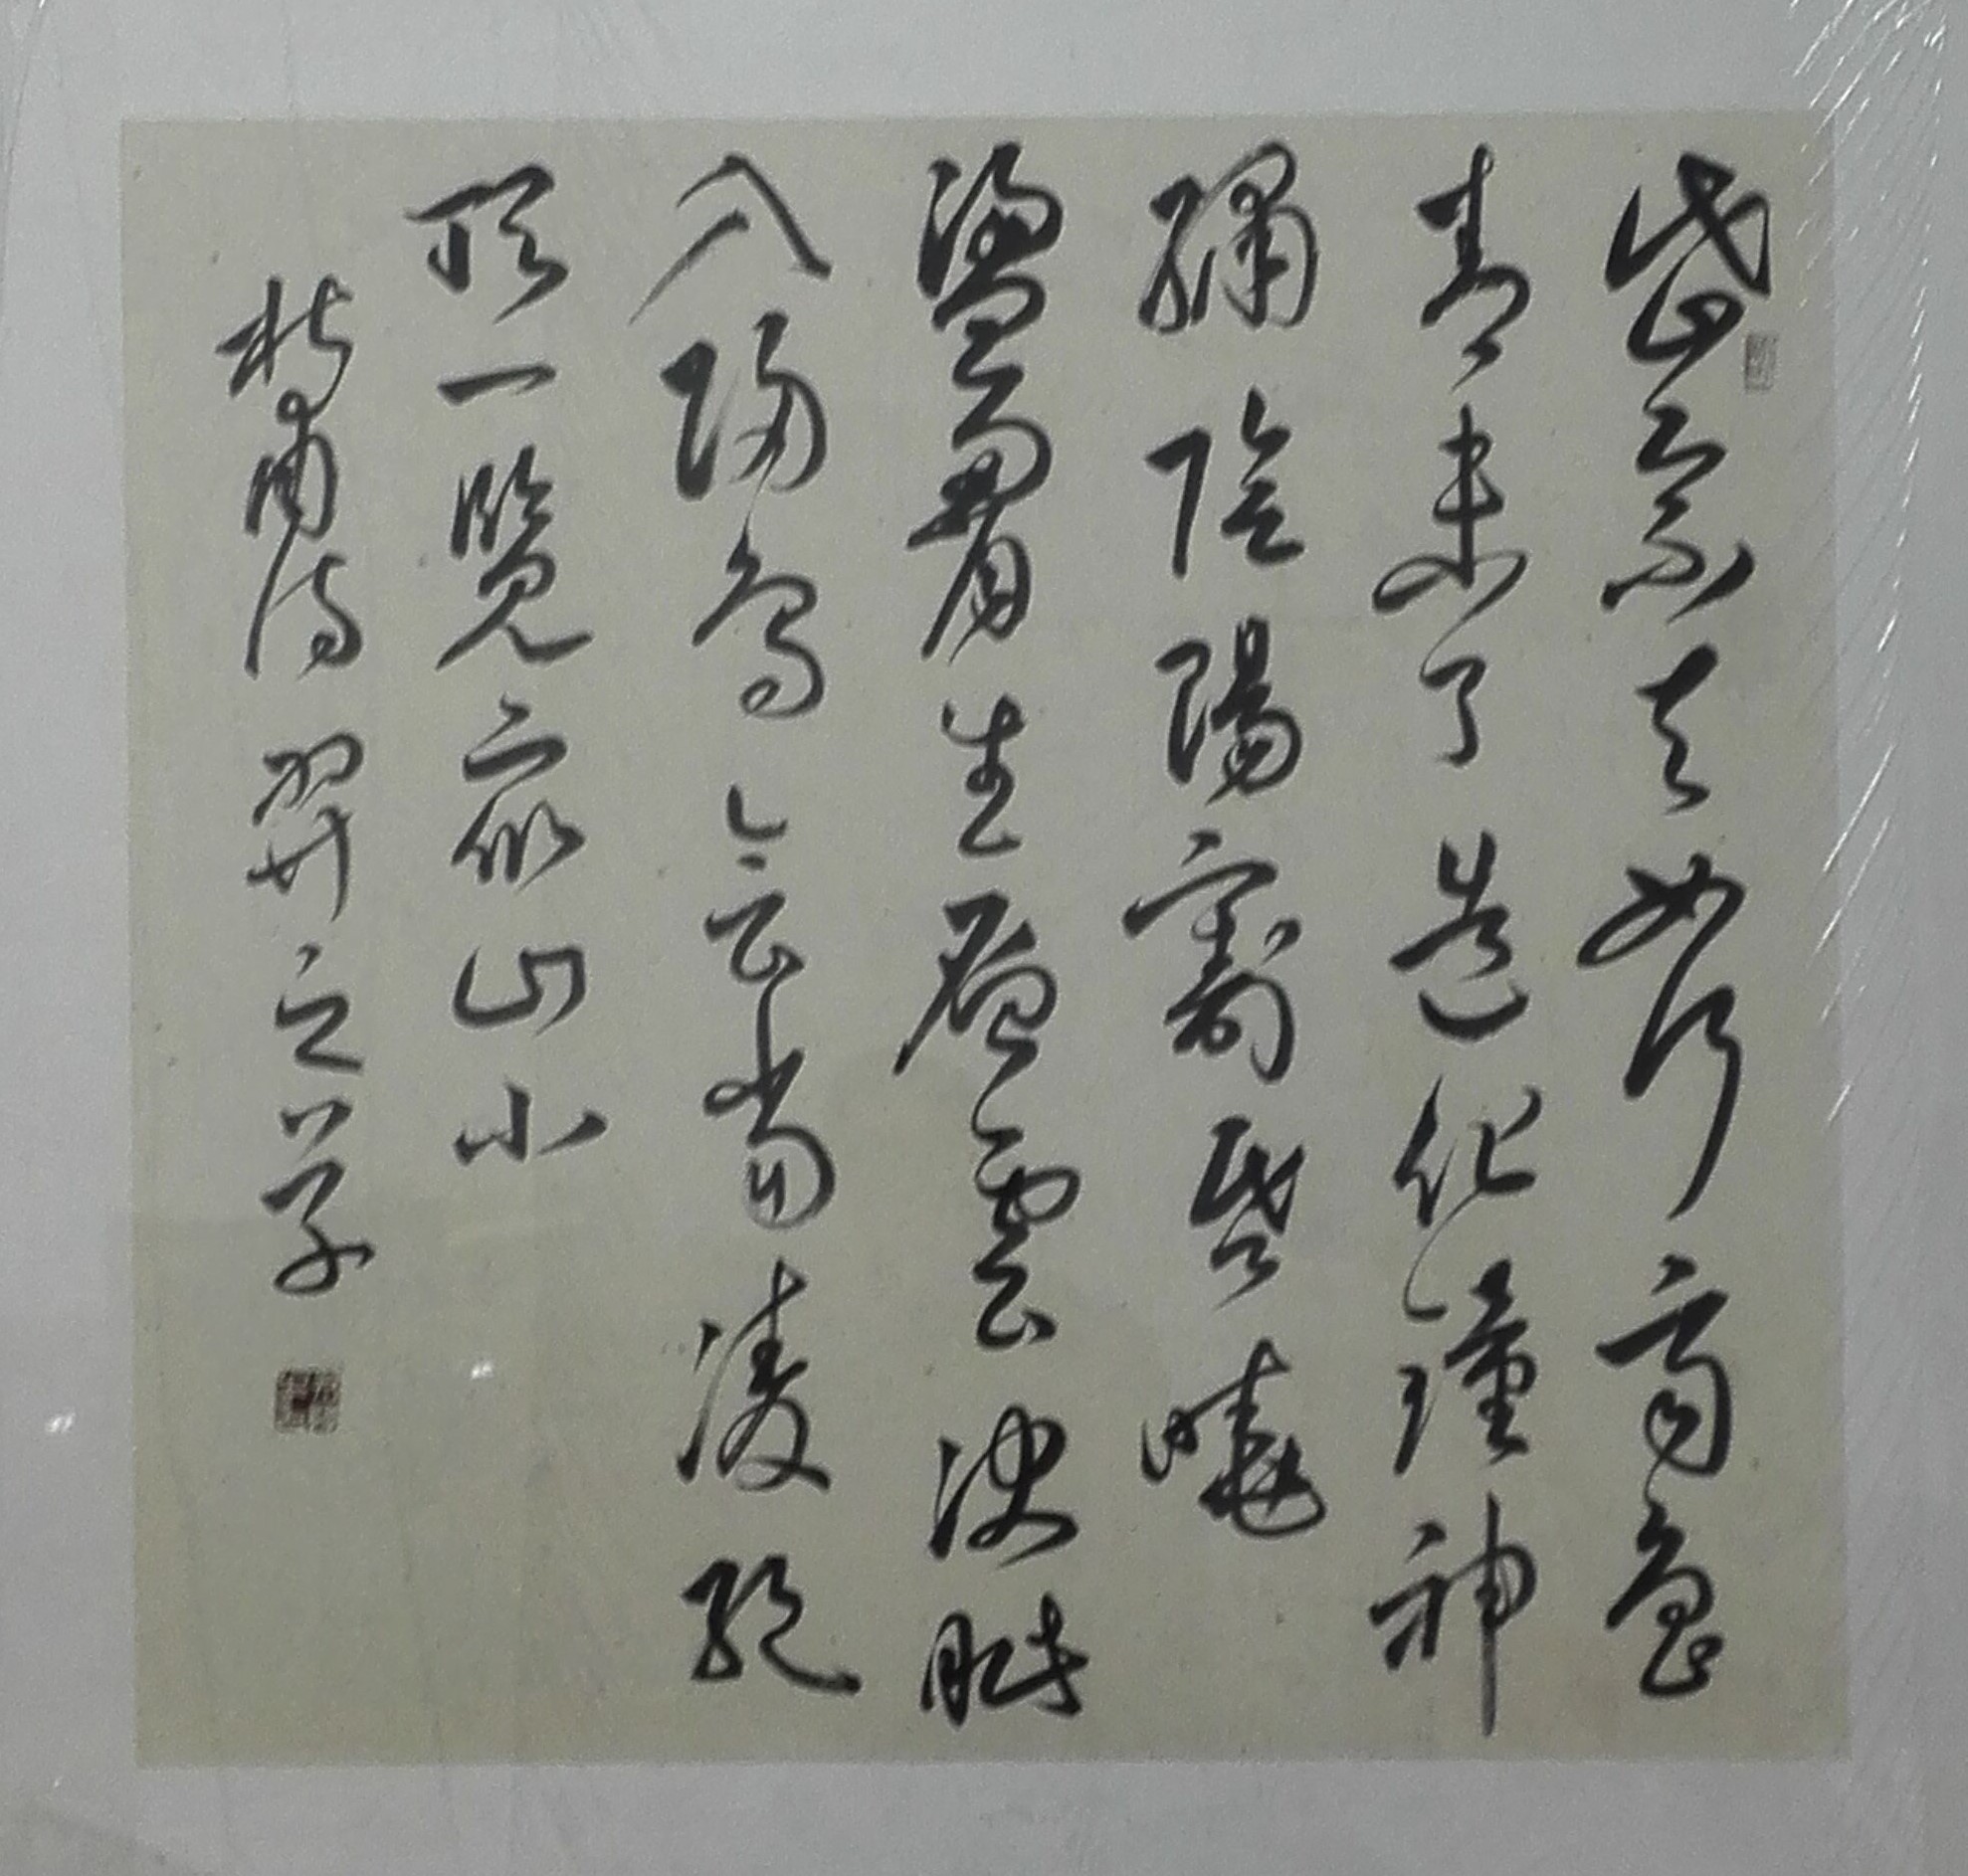 岱宗夫如何齊魯
青未了造化鍾神
繡陰陽割昏曉
盪胷生層雲決眥
入歸鳥會當凌絕
頂一覽眾山小
杜甫詩 羿之